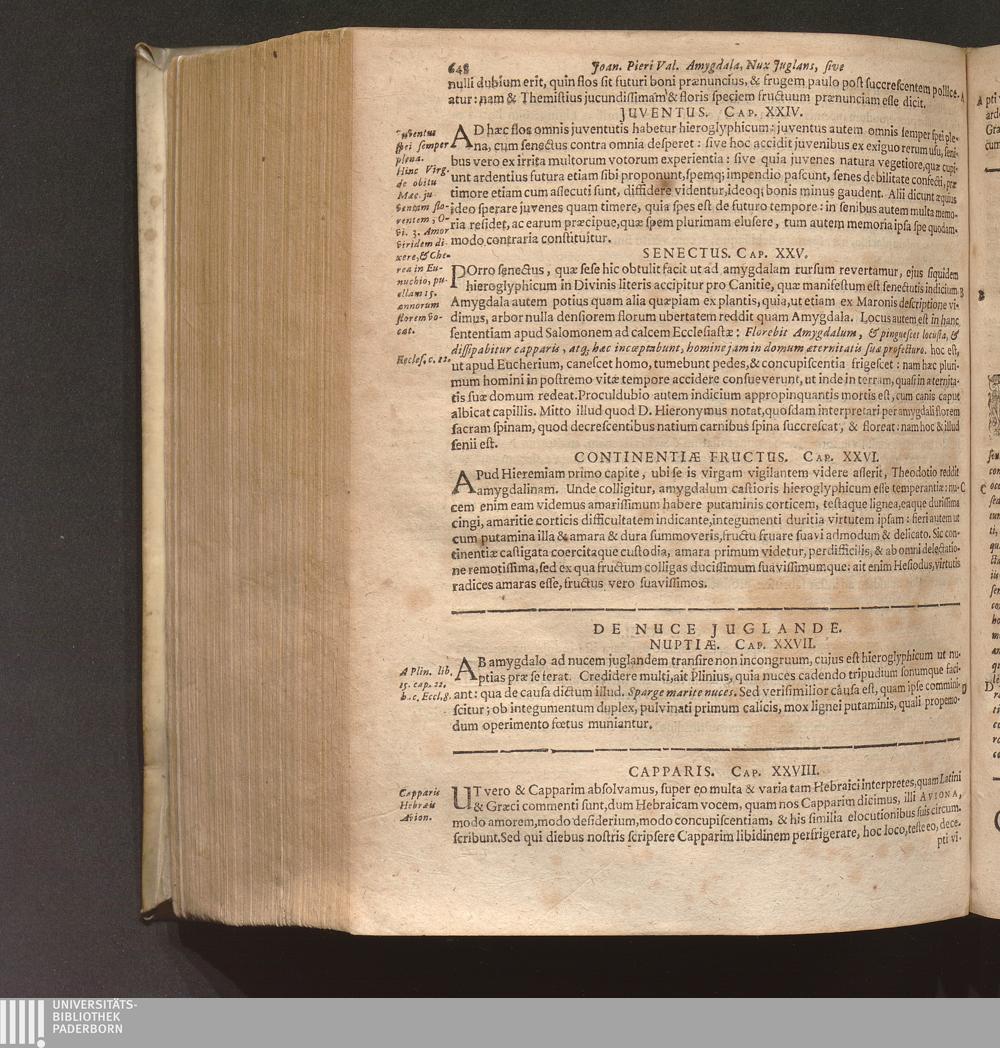 648 Joan. Pieri Val. Amygdala, Nux Juglans, sive
nulli dubium erit, quin flos sit futuri boni prænuncius, & frugem paulo post succrescentem pollice-
atur: nam & Themistius jucundissimam & floris speciem fructuum prænunciam esse dicit.
JUVENTUS. CAP. XXIV.
AD hæc flos omnis juventutis habetur hieroglyphicum: juventus autem omnis semper spei ple-
na, cum senectus contra omnia desperet: sive hoc accidit juvenibus ex exiguo rerum usu, seni-
bus vero ex irrita multorum votorum experientia: sive quia juvenes natura vegetiore, quæ cupi-
unt ardentius futura etiam sibi proponunt, spemq; impendio pascunt, senes debilitate confecti, præ
timore etiam cum assecuti sunt, diffidere videntur, ideoq; bonis minus gaudent. Alii dicunt æquius
ideo sperare juvenes quam timere, quia spes est de futuro tempore: in senibus autem multa memo-
ria residet, ac earum præcipue, quæ spem plurimam elusere, tum autem memoria ipsa spe quodam-
modo contraria constituitur.
Juventus
spei semper
plena.
Hinc Virg.
de obitu
Mæc. ju
ventam flo-
rentem, O-
vi. 3. Amor
viridem di-
xere, & Che-
rea in Eu-
nucho, pu-
ellam 15.
annorum
florem vo-
cat.
SENECTUS. CAP. XXV.
POrro senectus, quæ sese hic obtulit facit ut ad amygdalam rursum revertamur, ejus siquidem
hieroglyphicum in Divinis literis accipitur pro Canitie, quæ manifestum est senectutis indicium. B
Amygdala autem potius quam alia quæpiam ex plantis, quia, ut etiam ex Maronis descriptione vi-
dimus, arbor nulla densiorem florum ubertatem reddit quam Amygdala. Locus autem est in hanc
sententiam apud Salomonem ad calcem Ecclesiastæ: Florebit Amygdalum, & pinguescet locusta, &
dissipabitur capparis, atq; hæc incœptabunt, homine jam in domum æternitatis suæ profecturo. hoc est,
ut apud Eucherium, canescet homo, tumebunt pedes, & concupiscentia frigescet: nam hæc pluri-
mum homini in postremo vitæ tempore accidere consueverunt, ut inde in terram, quasi in æternita-
tis suæ domum redeat. Proculdubio autem indicium appropinquantis mortis est, cum canis caput
albicat capillis. Mitto illud quod D. Hieronymus notat, quosdam interpretari per amygdali florem
sacram spinam, quod decrescentibus natium carnibus spina succrescat, & floreat: nam hoc & illud
senii est.
Eccles. c. 12.
CONTINENTIÆ FRUCTUS. CAP. XXVI.
APud Hieremiam primo capite, ubi se is virgam vigilantem videre asserit, Theodotio reddit
amygdalinam. Unde colligitur, amygdalum castioris hieroglyphicum esse temperantiæ: nu- C
cem enim eam videmus amarissimum habere putaminis corticem, testaque lignea, eaque durissima
cingi, amaritie corticis difficultatem indicante, integumenti duritia virtutem ipsam: fieri autem ut
cum putamina illa & amara & dura summoveris, fructu fruare suavi admodum & delicato. Sic con-
tinentiæ castigata coercitaque custodia, amara primum videtur, perdifficilis, & ab omni delectatio-
ne remotissima, sed ex qua fructum colligas dulcissimum suavissimumque: ait enim Hesiodus, virtutis
radices amaras esse, fructus vero suavissimos.
DE NUCE JUGLANDE.
NUPTIÆ. CAP. XXVII.
AB amygdalo ad nucem juglandem transire non incongruum, cujus est hieroglyphicum ut nu-
ptias præ se ferat. Credidere multi, ait Plinius, quia nuces cadendo tripudium sonumque faci-
ant: qua de causa dictum illud. Sparge marite nuces. Sed verisimilior causa est, quam ipse commini- D
scitur; ob integumentum duplex, pulvinati primum calicis, mox lignei putaminis, quali propemo-
dum operimento fœtus muniantur.
A Plin. lib.
15. cap. 22.
b. c. Eccl. 8.
CAPPARIS. CAP. XXVIII.
UT vero & Capparim absolvamus, super eo multa & varia tam Hebraici interpretes, quam Latini
& Græci commenti sunt, dum Hebraicam vocem, quam nos Capparim dicimus, illi AVIONA,
modo amorem, modo desiderium, modo concupiscentiam, & his similia elocutionibus suis circum-
scribunt. Sed qui diebus nostris scripsere Capparim libidinem perfrigerare, hoc loco, teste eo, dece-
pti vi-
Capparis
Hebræis
Avion.
UNIVERSITÄTS-
BIBLIOTHEK
PADERBORN